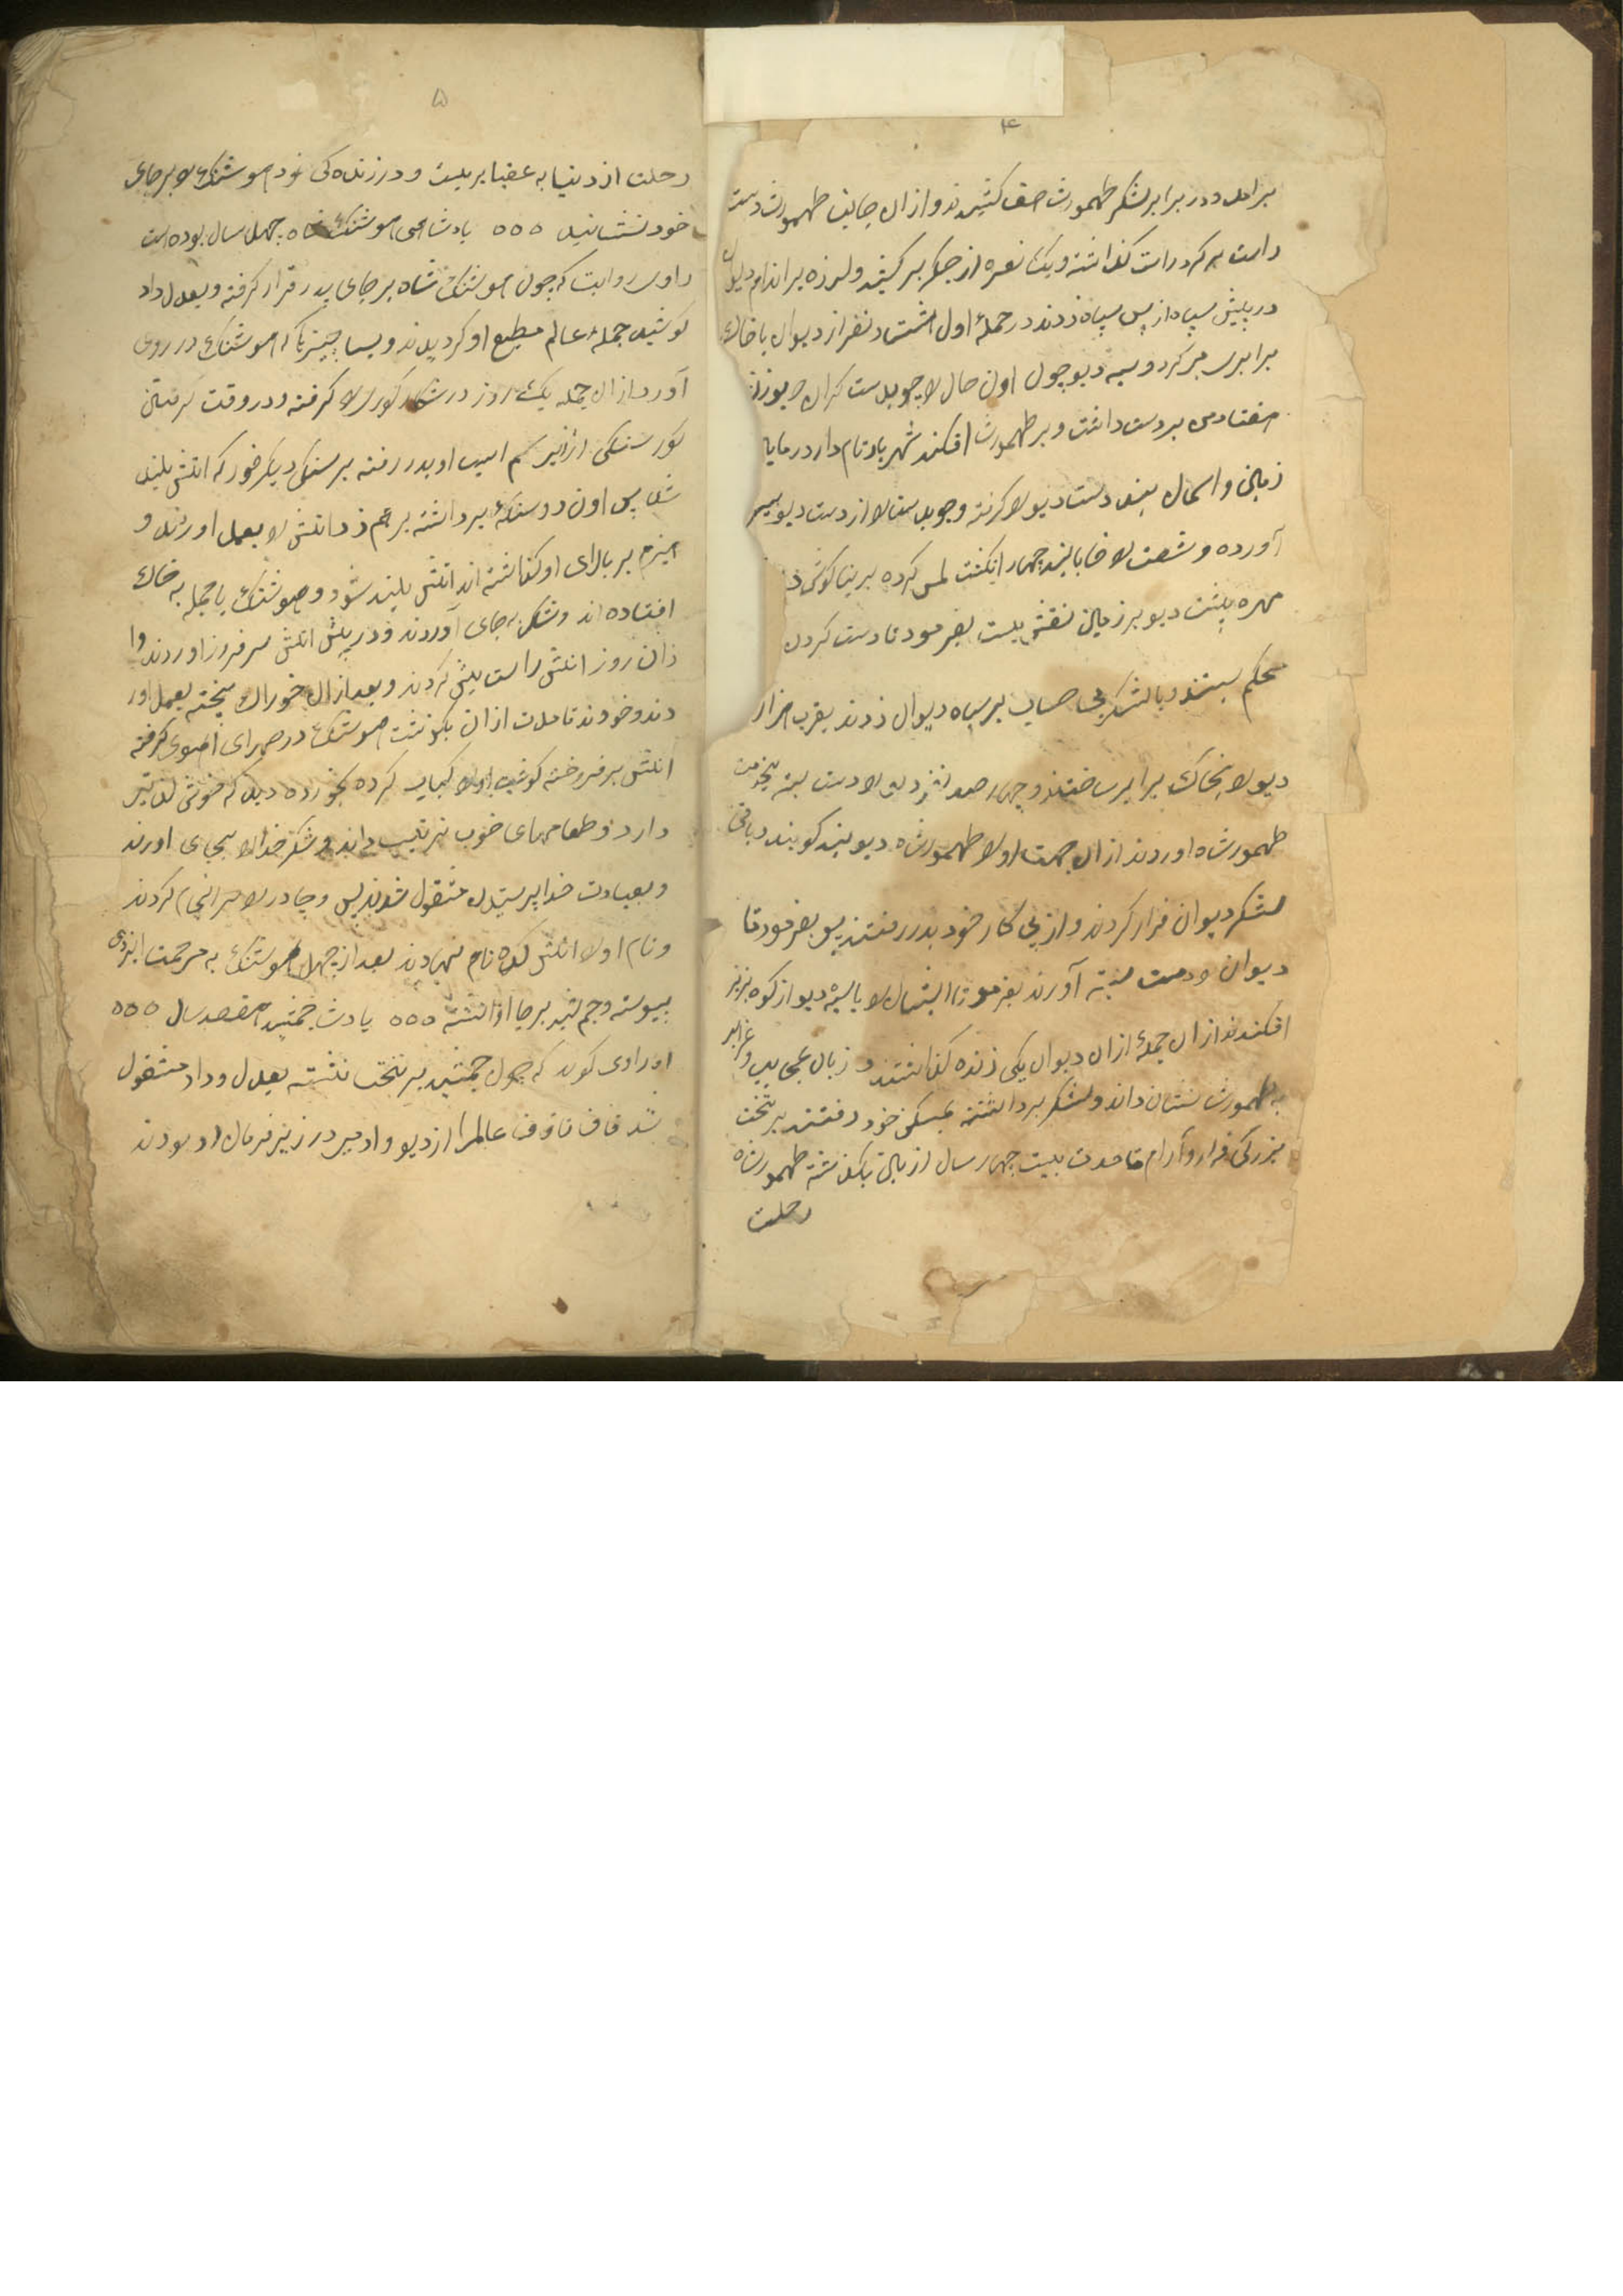 ۴
برامد و در برابر لشکر طهمورث صف کشیدند و از ان جانب طهمورث دست
راست بر کرد راست کذاشته و یک نعره از جکر بر کشید و لرزه بر اندام دیوان
در پیش سپاه از پس سپاه زدند در حملهٔ اول هشتاد نفر از دیوان با خاک
برابری بر کرد و سیه دیو چون اون حال لا چوبدست کران
هفتاد من بر دست داشت و بر طهمورث افکند شهریار نامدار در میان
زمین و اسمان بند دست دیو لا کرفته و چوبدست لا از دست دیو بیر
آورده و شصت لا خابانید چهار انکشت لمس کرده بر بنا کوش
مهره پشت دیو بر زمین نقش بست بفرمود تا دست کردن
محکم بستند و با لشکر بی حساب بر سپاه دیوان زدند بقرب هزار
دیو لا بخاک برابر ساختند و چهار صد نفر دیو لا دست بسته بخدمت
طهمورشاه اوردند از ان جهت اولا طهمورشاه دیوبند کویند و باقی
لشکر دیوان فرار کردند و از پی کار خود بدر رفتند پس بفرمود تا
دیوان دست بسته آورند بفرمود تا ایشان لا با سیه دیو از کوه بزیر
افکندند از ان جملهٔ از ان دیوان یکی زنده کذاشتند و زبان عجایب و غرایب
به طهمورث نشان داند و لشکر برداشته بمسکن خود رفتند بر تخت
بزرکی قرار و آرام تا مدت بیست چهار سال از باین بکذشته طهمورشاه
رحلت
۵
رحلت از دنیا به عقبا بربست و در زنده کی خود هوشنک لا بر جای
خود نشانید ٥٥٥ پادشاهی هوشنک شاه چهل سال بوده است
راوی روایت که چون هوشنک شاه بر جای پدر قرار کرفته و بعدل داد
کوشید جملهٔ عالم مطیع او کردیدند و بسا چیزها که هوشنک در روی
آورد از ان جمله یک روز در شکار کوری لا کرفته و در وقت کرفتن
کور سنکی از زیر سم اسب او بدر رفته بر سنک دیکر خورد که اتش بلند
شد پس اون دو سنکهٔ برداشته بر هم زد اتش لا بعمل اورند و
هیزم بر بالای او کذاشته اند اتش بلند شود و هوشنک با جمله به خاک
افتاده اند و شکر بجای آوردند و در پیش اتش سر فرود اوردند وا
زان روز اتش راست پیش کردند و بعد از ان خوراک پخته بعمل اور
دند و خوردند تا مدت از ان بکذشت هوشنک در صحرای اهوی کرفته
اتش بر فروخته کوشت اولا کباب کرده بخورده دید که خوش لذتی
دارد و طعامهای خوب ترتیب داند و شکر خدا لا بجای اورند
و بعبادت خدا پرستیدن مشغول شوند پس و چادر لا کردند
و نام اولا اتش کده نام نهادند بعد از چهل هوشنک به مرحمت ایزدی
پیوسته و جمشید بر جا او نشسته ٥٥٥ پادشا جمشید هفصد سال ٥٥٥
اوراوی کوید که چون جمشید بر تخت نشسته بعدل و داد مشغول
شد قاف تا قوف عالم را از دیو و ادمیر در زیر فرمان او بودند